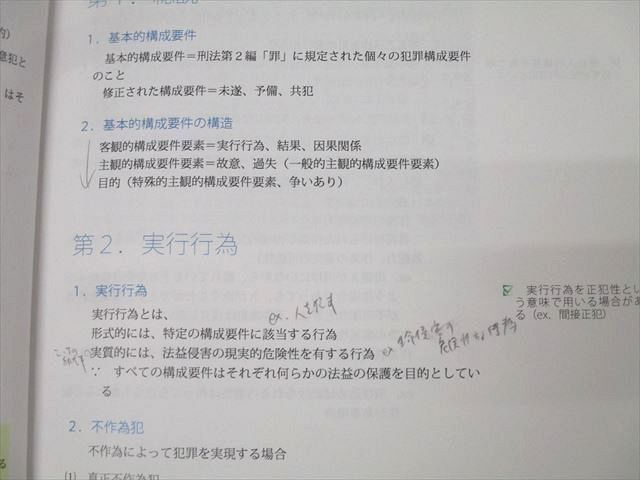 第1. 総説
1. 基本的構成要件
基本的構成要件＝刑法第２編「罪」に規定された個々の犯罪構成要件
のこと
修正された構成要件＝未遂、予備、共犯
2. 基本的構成要件の構造
客観的構成要件要素＝実行行為、結果、因果関係
主観的構成要件要素＝故意、過失（一般的主観的構成要件要素）
目的（特殊的主観的構成要件要素、争いあり）
第２. 実行行為
1. 実行行為
実行行為とは、
ex. 人を殺す
形式的には、特定の構成要件に該当する行為
実質的には、法益侵害の現実的危険性を有する行為
ex.
∵ すべての構成要件はそれぞれ何らかの法益の保護を目的としてい
る
2. 不作為犯
不作為によって犯罪を実現する場合
⑴ 真正不作為犯
実行行為を正犯性とい
う意味で用いる場合があ
る（ex. 間接正犯）
的）
意犯と
はそ
る